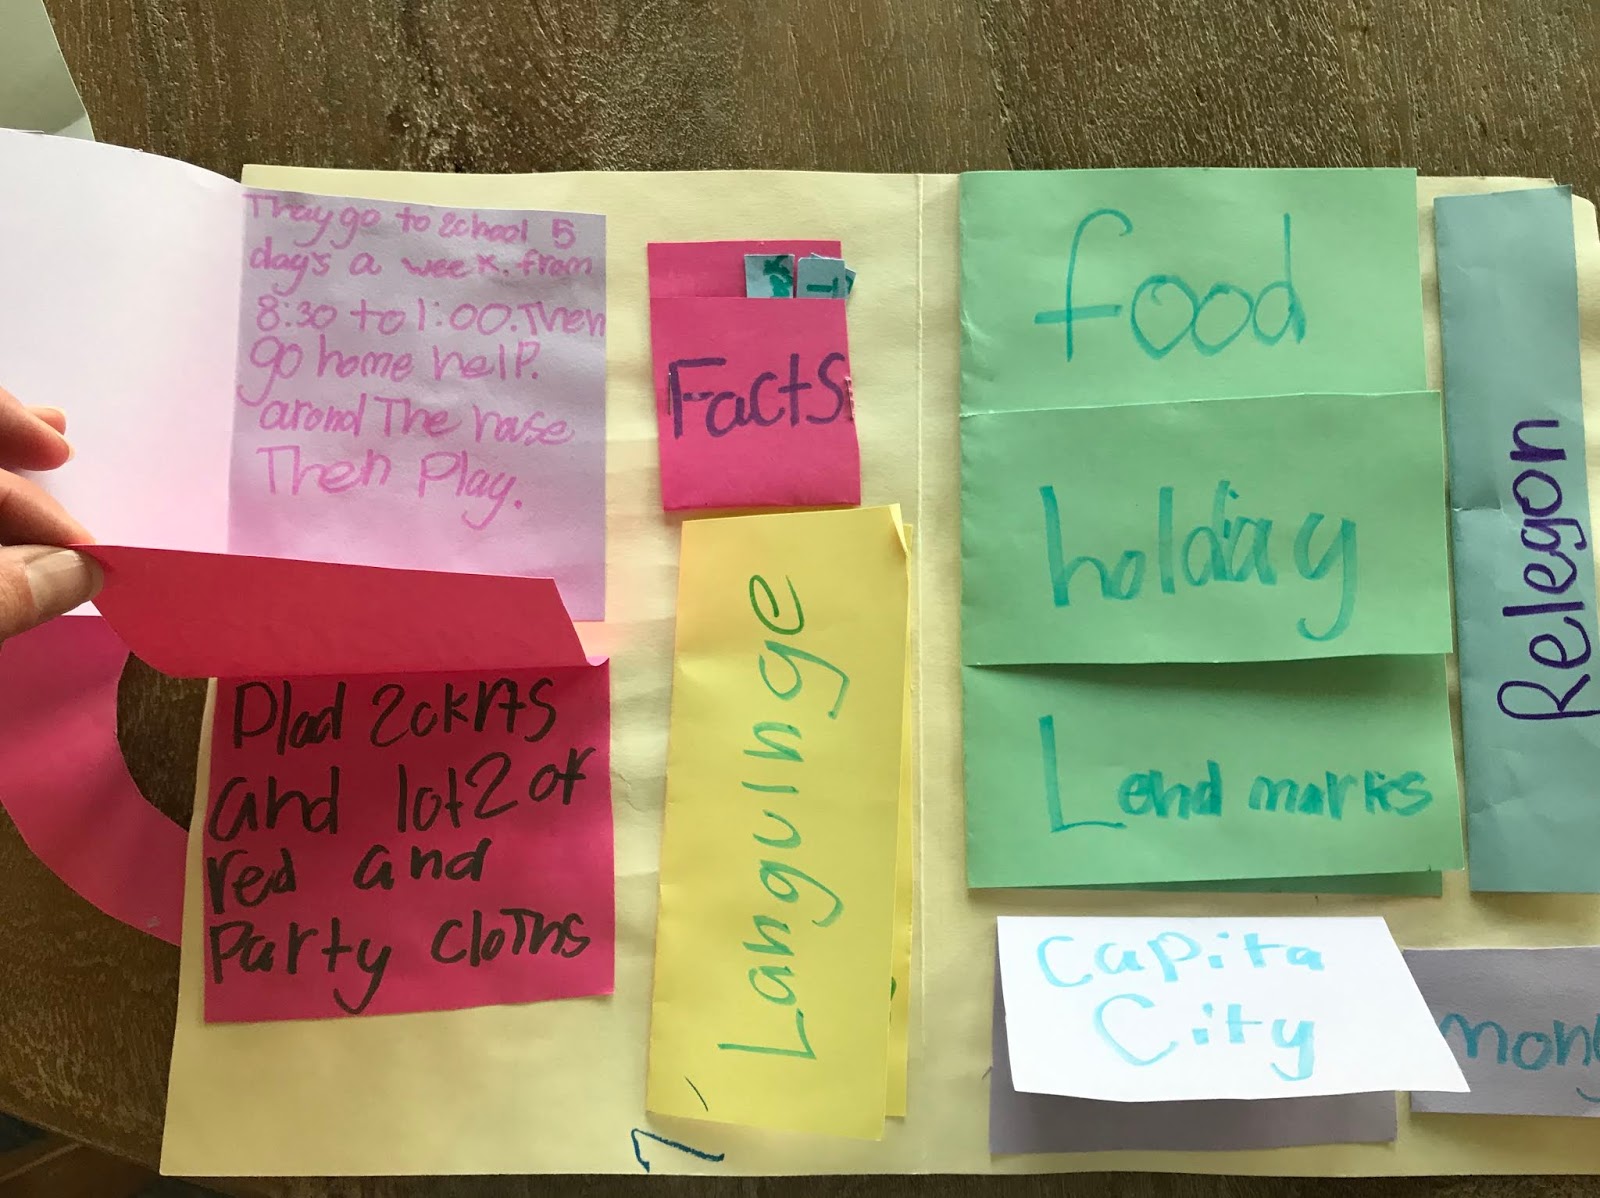 Thay go to 2chool 5
days a week. from
8:30 to 1:00. Then
go home help.
arond The house
Then Play.
Plad 2ckrts
and lot2 of
red and
Party cloths
Facts
Languinge
food
holdiay
Lendmarkes
Relegon
Capita
City
mony